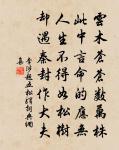 雲木蒼蒼數萬株
此中言命的應無
人生不得如松樹
却遇秦封作大夫
李涉題五松驛
集